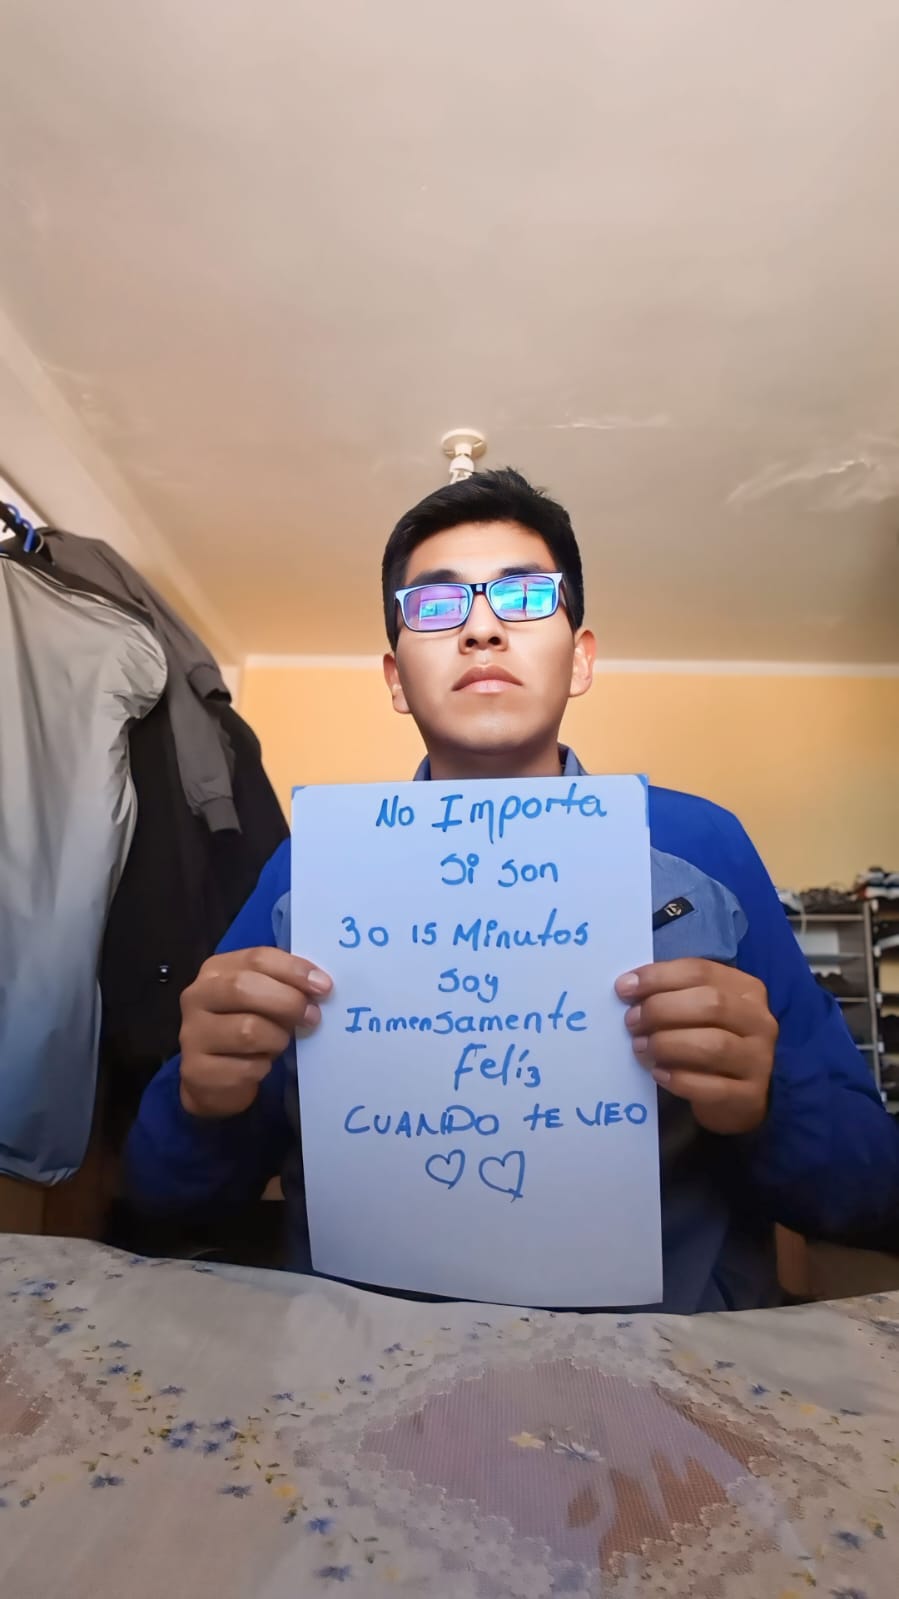 No Importa
Si son
30 15 Minutos
Soy
Inmensamente
Felíz
CUANDO TE VEO